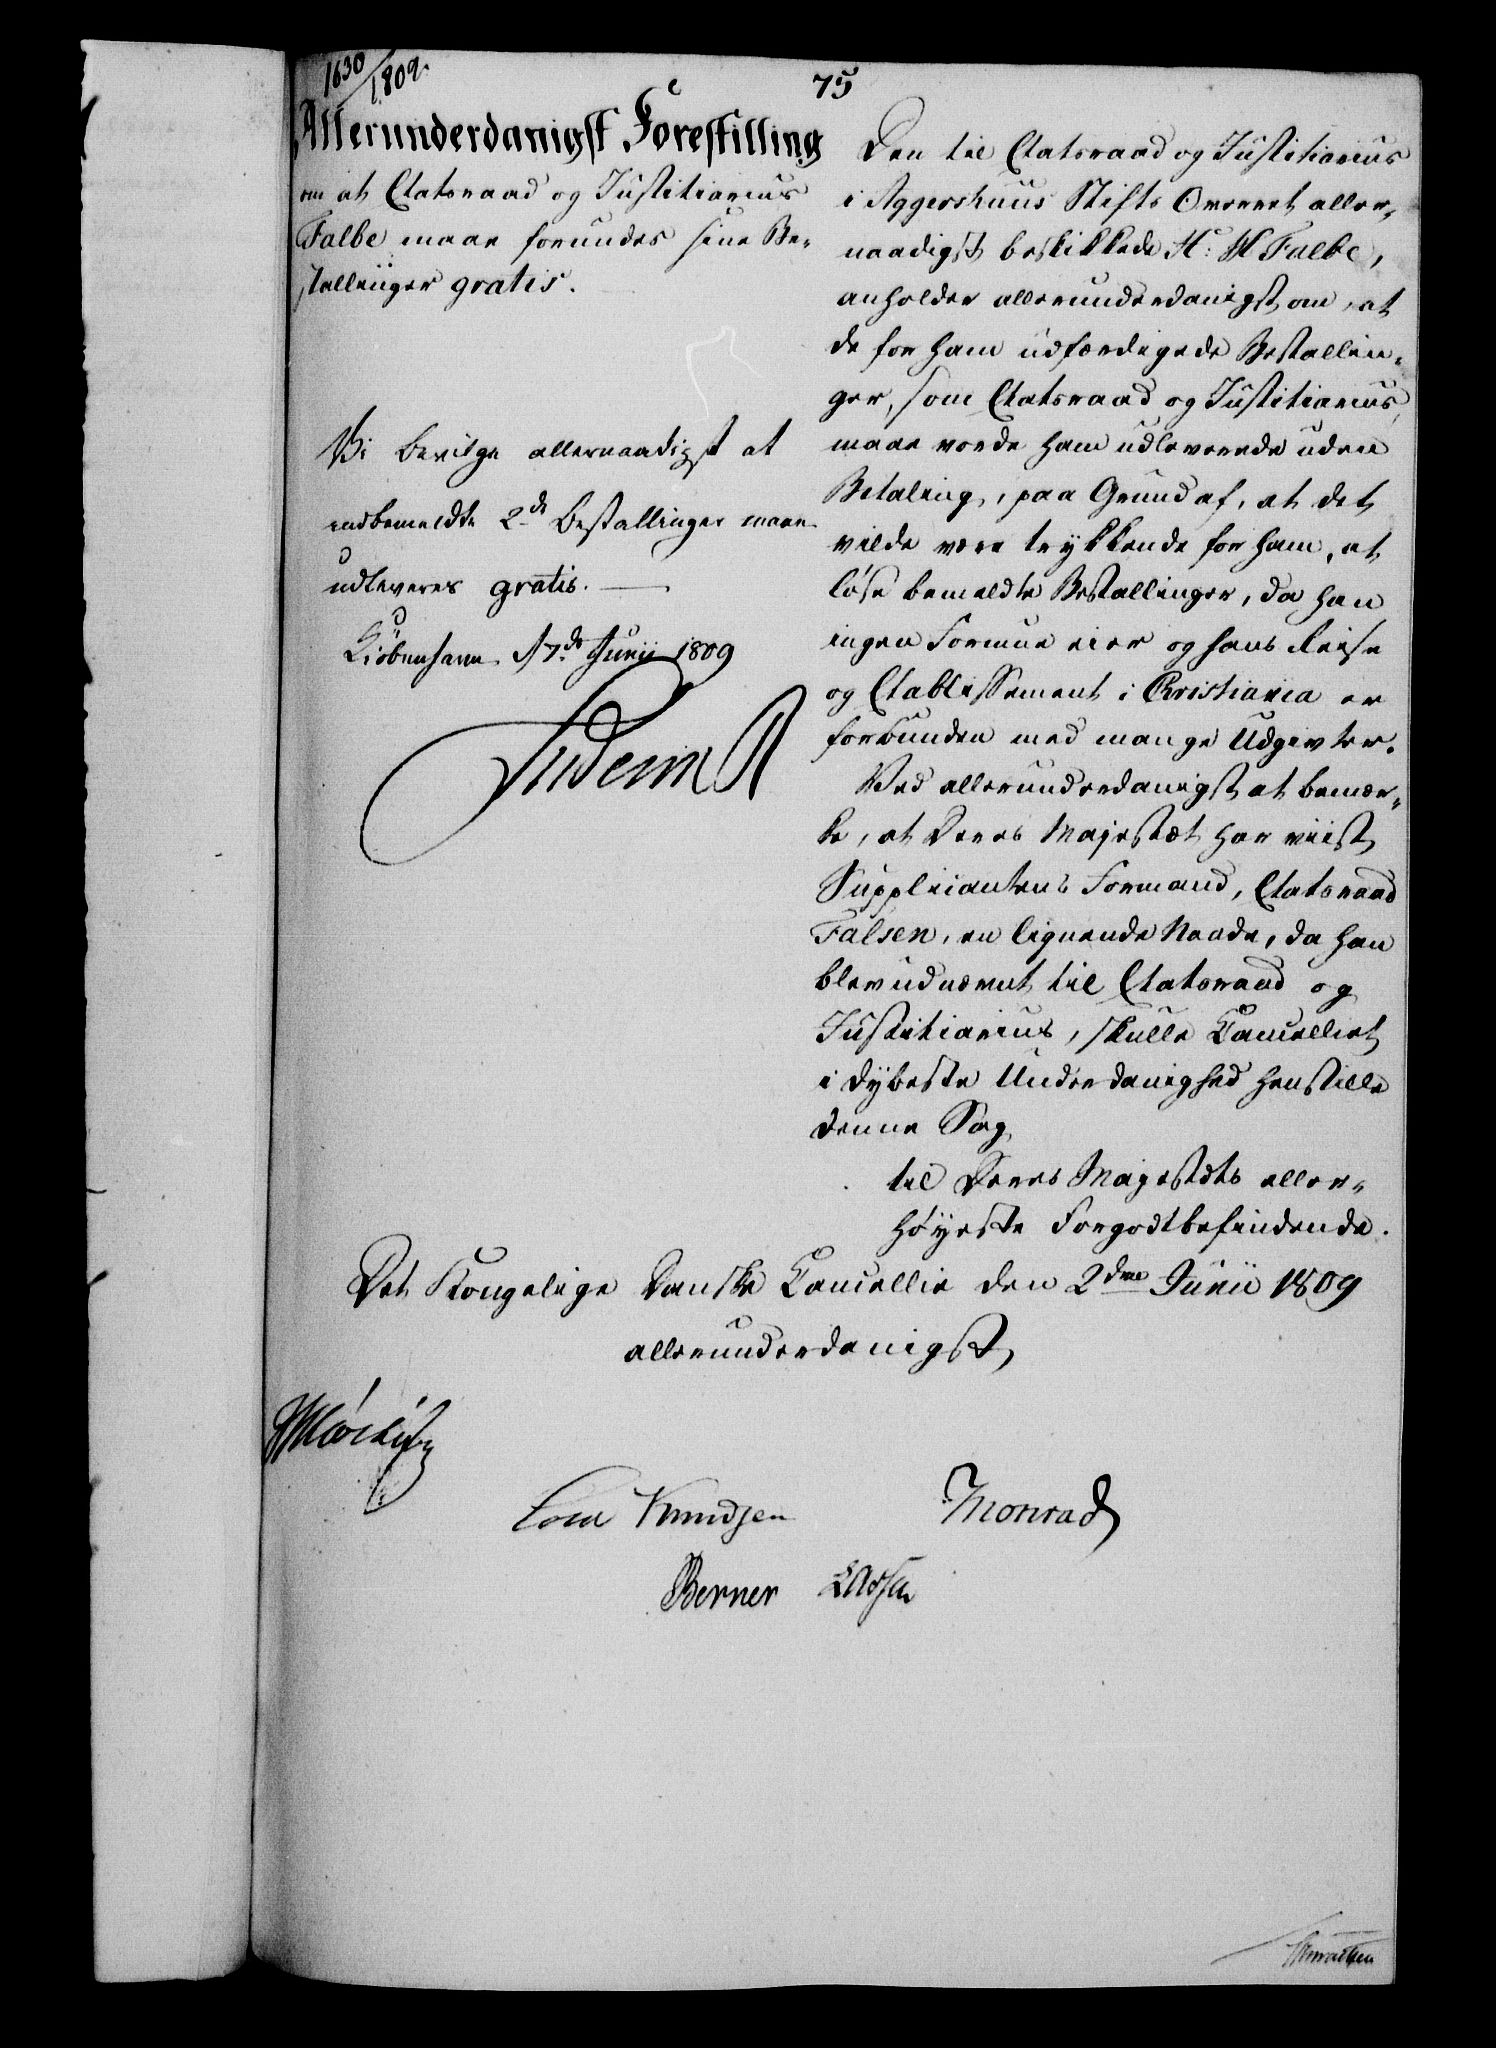 1630/1809.
75
Allerunderdanigst Forestilling
om at Etatsraad og Justitiarius
Falbe maae forundes sine Be-
stallinger gratis.
Vi bevilge allernaadigst at
indbemeldte 2de Bestallinger maae
udleveres gratis.
Kiöbenhavn d 7de Junii 1809
Friderich R
Den til Etatsraad og Justitiarius
i Aggershuus Stifts Overret aller-
naadigst beskikkede H: H Falbe,
anholder allerunderdanigst om, at
de for ham udfærdigede Bestallin-
ger, som Etatsraad og Justitiarius,
maae vorde ham udleverede uden
Betaling, paa Grund af, at det
vilde være trykkende for ham, at
löse bemeldte Bestallinger, da han
ingen Formue eier og hans Reise
og Etablissement i Christiania er
forbunden med mange Udgivter.
Ved allerunderdanigst at bemær-
ke, at Deres Majestæt har viist
Supplicantens Formand, Etatsraad
Falsen, en lignende Naade, da han
blev udnævnt til Etatsraad og
Justitiarius, skulle Cancelliet
i dybeste Underdanighed henstille
denne Sag
til Deres Majestæts aller-
höyeste Forgodtbefindende.
Det Kongelige Danske Cancellie den 2den Junii 1809
allerunderdanigst
Cold Knudsen Monrad
Berner Lassen